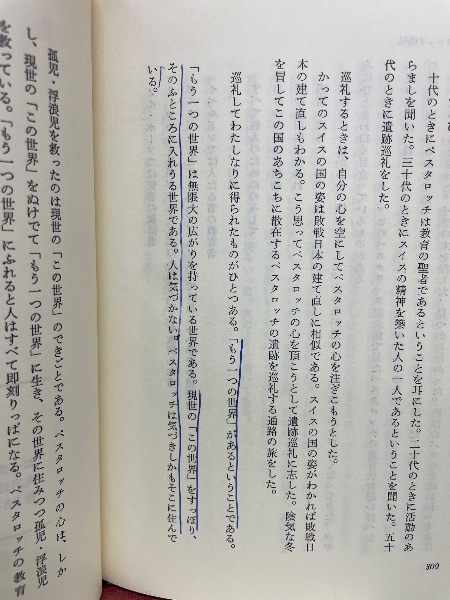 十代のときにペスタロッチは教育の聖者であるということを耳にした。二十代のときに活動のあ
らましを聞いた。三十代のときにスイスの精神を築いた人の一人であるということを聞いた。五十
代のときに遺跡巡礼をした。
巡礼するときは、自分の心を空にしてペスタロッチの心を注ぎこもうとした。
かつてのスイスの国の姿は敗戦日本の建て直しに相似である。スイスの国の姿がわかれば敗戦日
本の建て直しもわかる。こう思ってペスタロッチの心を頂こうとして遺跡巡礼に志した。陰気な冬
を冒してこの国のあちこちに散在するペスタロッチの遺跡を巡礼する通路の旅をした。
巡礼してわたしなりに得られたものがひとつある。「もう一つの世界」があるということである。
「もう一つの世界」は無限大の広がりを持っている世界である。現世の「この世界」をすっぽり、
そのふところに入れうる世界である。人は気づかない。ペスタロッチは気づきしかもそこに住んで
いる。
孤児・浮浪児を救ったのは現世の「この世界」のできごとである。ペスタロッチの心は、しか
し、現世の「この世界」をぬけでて「もう一つの世界」に生き、その世界に住みつつ孤児・浮浪児
を救っている。「もう一つの世界」にふれると人はすべて即刻りっぱになる。ペスタロッチの教育
300